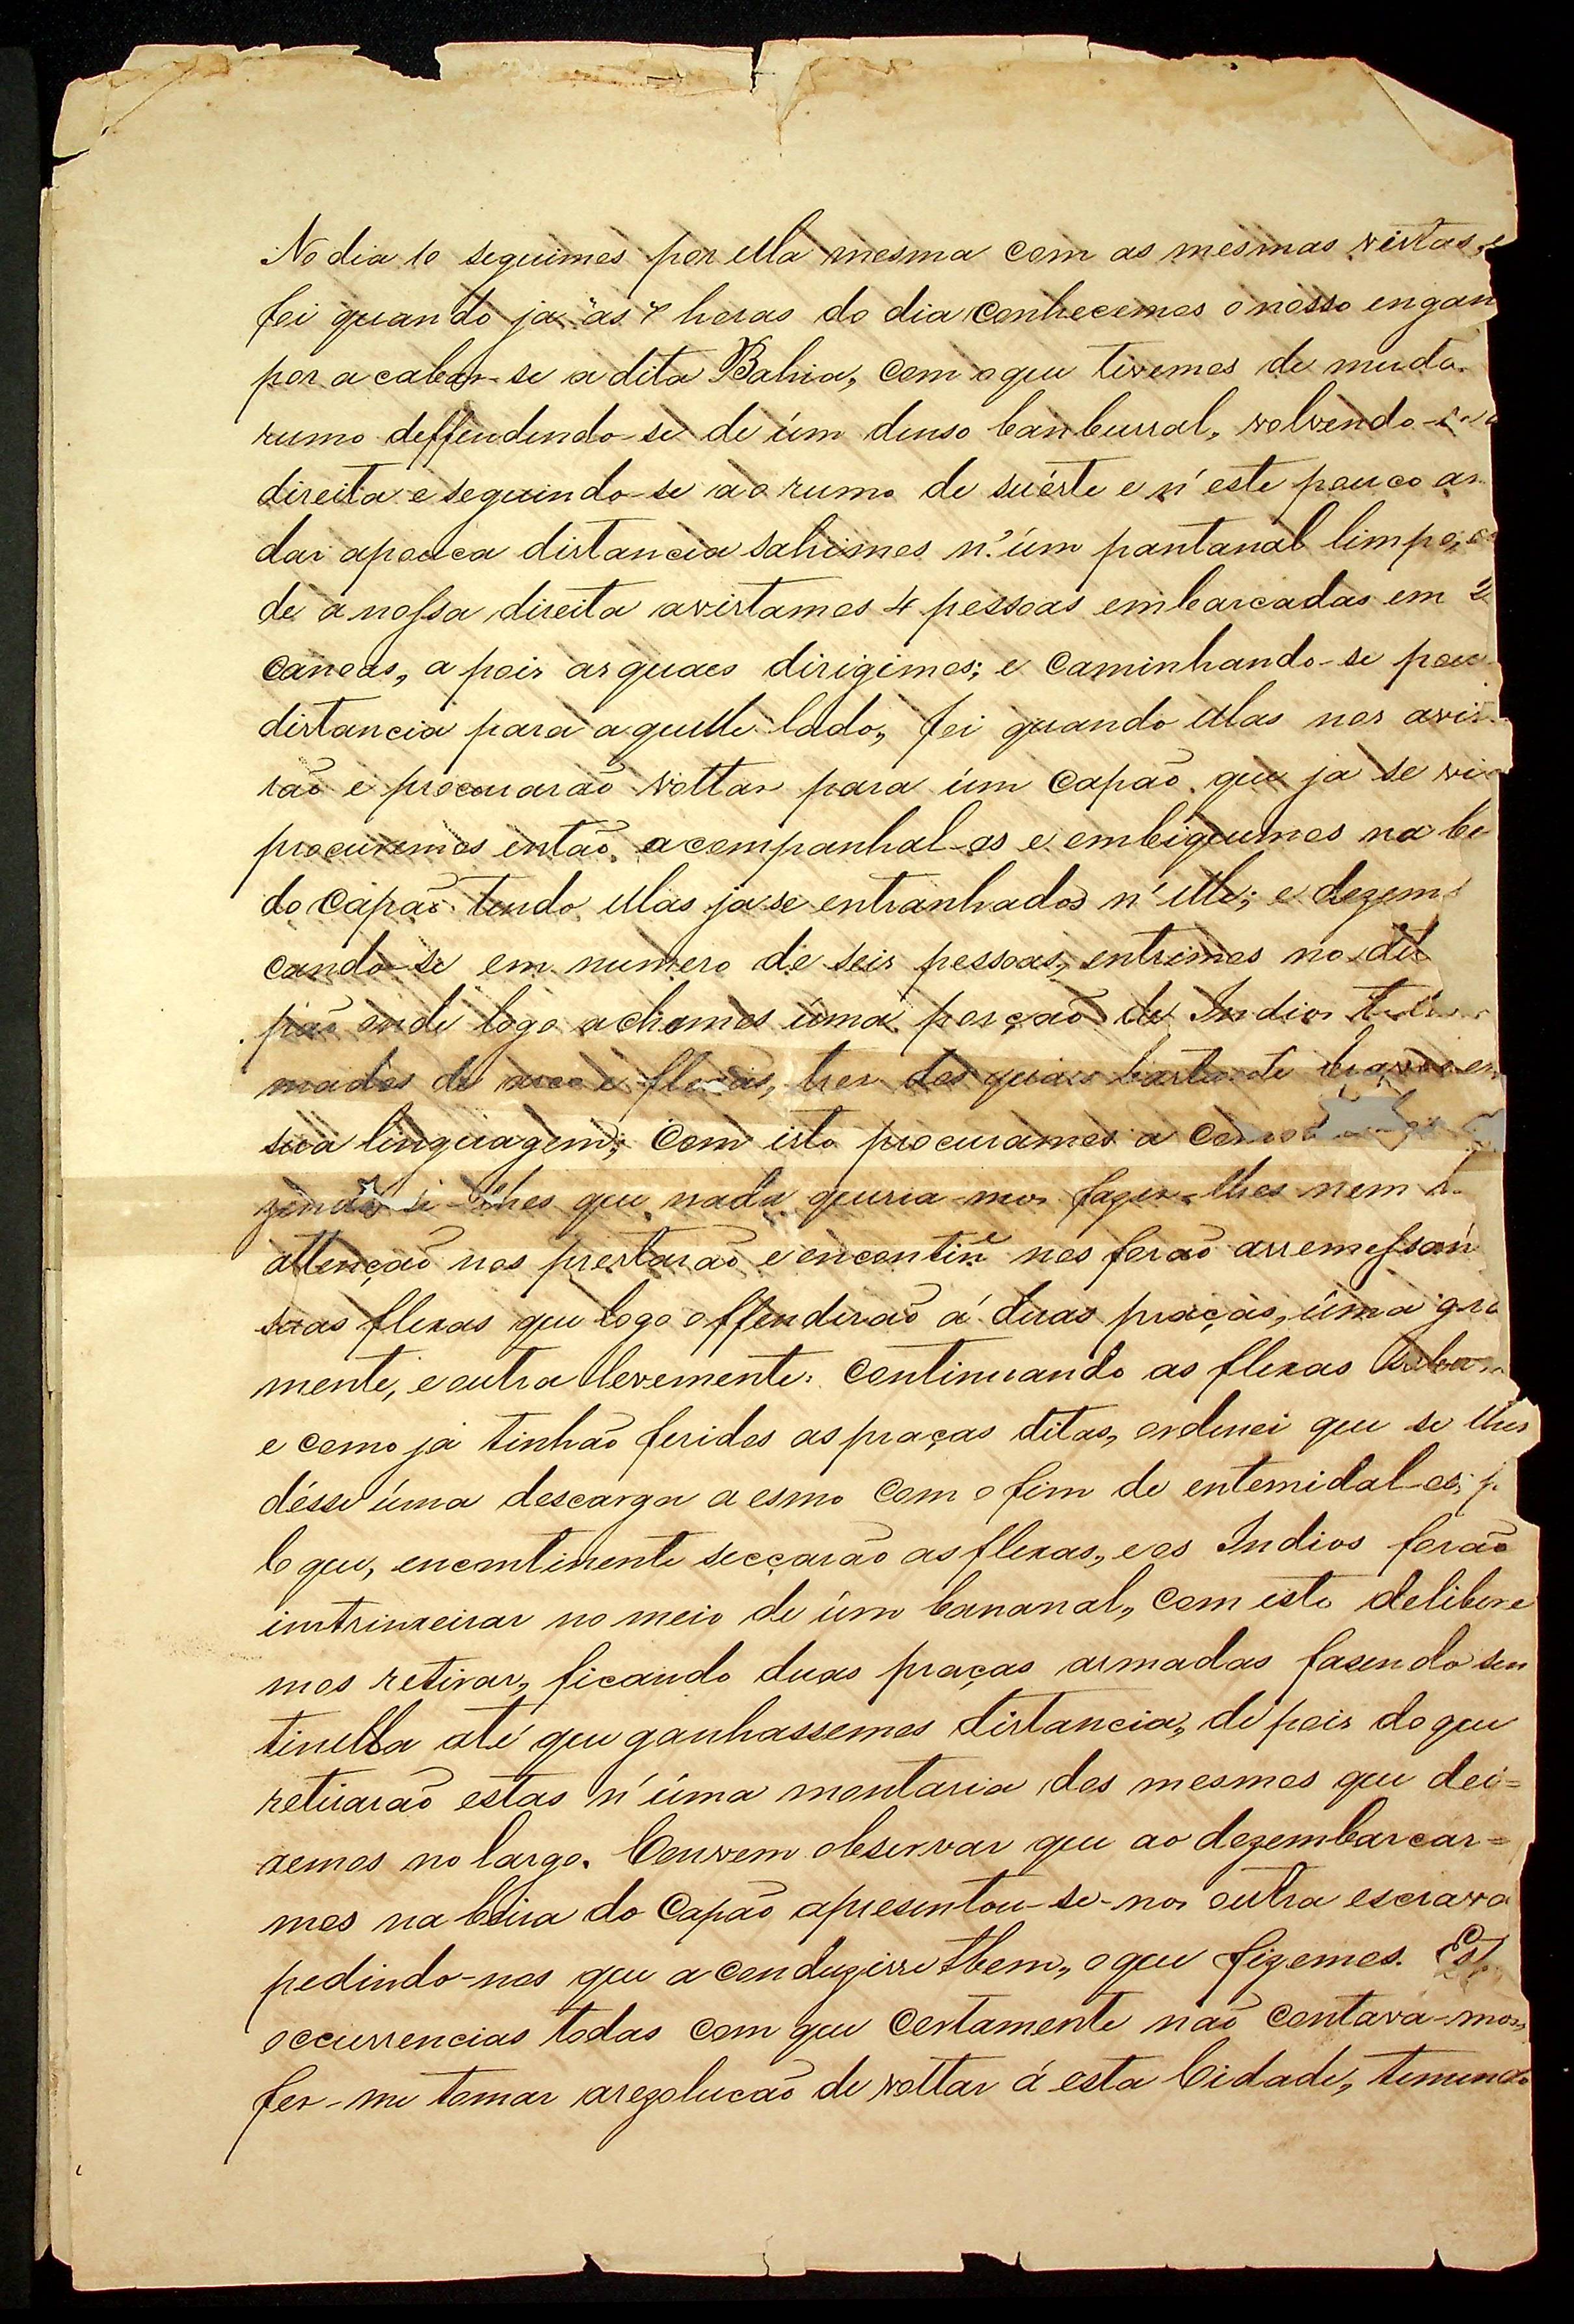 No dia 10 seguimos por ella mesma com as mesmas vistas, e
foi quando ja ás 4 horas do dia conhecemos o nosso engan
por acabar-se a dita Bahia, com o que tivemos de muda
rumo deffendendo-se de úm denso banburral, volvendo-se a
direita e seguindo-se ao rumo de suéste e n'este pouco an
dar apouca distancia sahimos n'úm pantanal limpo,
de á nossa direita avistamos 4 pessoas embarcadas em 2
canoas, a pois as quaes dirigimos; e caminhando-se pou
distancia para aquelle lado, foi quando ellas nos avis
rão e procurarão voltar para úm capão que ja se vi
procuremos então acompanhal-os e embiquemos na be
do capão tendo ellas ja se entranhados n'elle; e dezem
cando-se em numero de seis pessoas, entrimos no dit
pão onde logo achamos úma porção de Indios
mados de arco e flexas, tres dos quaes bastante
sua linguagem; com isto procuramos a
-lhes que nada queria-mos fazer-lhes nem
attenção nos prestarão e encontiñ nos forão arremessan
suas flexas que logo offenderão á duas praças, úma gra
mente, e outra levemente: continuando as flexas
e como já tinhão feridos as praças ditas, ordenei que se lhes
désse úma descarga a esmo com o fim de entemidal-os; p
lo que, encontinente secçarão as flexas, e os Indios forão
intrinxeirar no meio de úm bananal, com isto delibere
mos retirar, ficando duas praças armadas fasendo sen
tinella até que ganhassemos distancia, depois do que
retirarão estas n'úma montaria dos mesmos que dei=
xemos no largo. Convem observar que ao dezembarcar=
mos na beira do Capão apresentou-se-nos outra escrava
pedindo-nos que a conduzisse tbem, o que fizemos. Est
occurrencias todas com que certamente não contava-mos,
fes-me tomar a rezolucão de voltar á esta Cidade, temendo